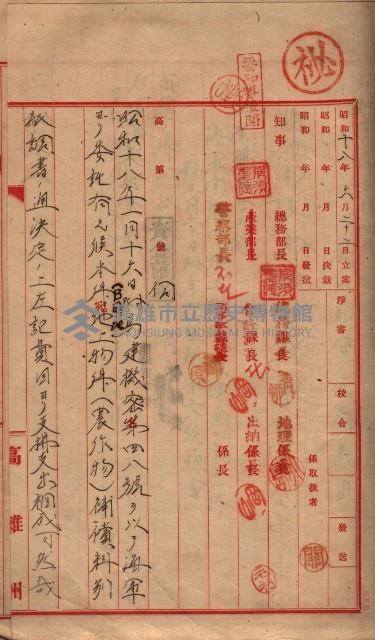 秘
昭和十八年六月二十二日立案
昭和 年 月 日決裁
昭和 年 月 日發送
淨書
校合
發送
係取扱者
知事
總務部長
產業部長
警察部長
地理係長
出納係長
係長
高第 號
伺
昭和十八年一月十六日
建機密第四八號ヲ以テ海軍
ヨリ委託有之候本件地上物件(農作物)補償料別
紙調書ノ通決定ノ上左記費目ヨリ支拂支出相成可然哉
高雄州
高雄市立歷史博物館